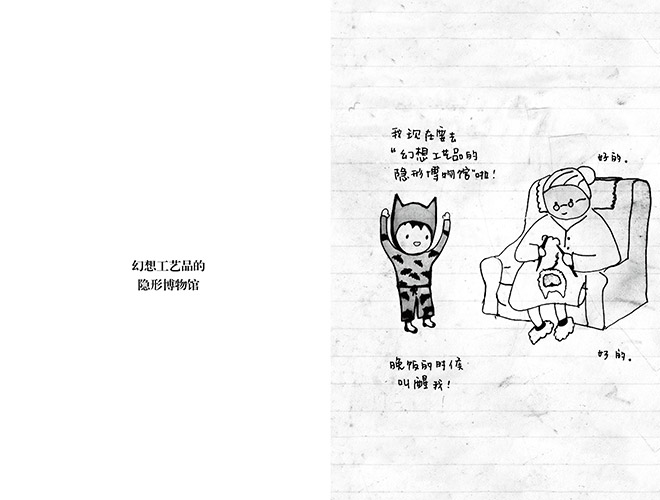 幻想工艺品的
隐形博物馆
我现在要去
“幻想工艺品的
隐形博物馆”啦！
好的。
晚饭的时候
叫醒我！
好的。